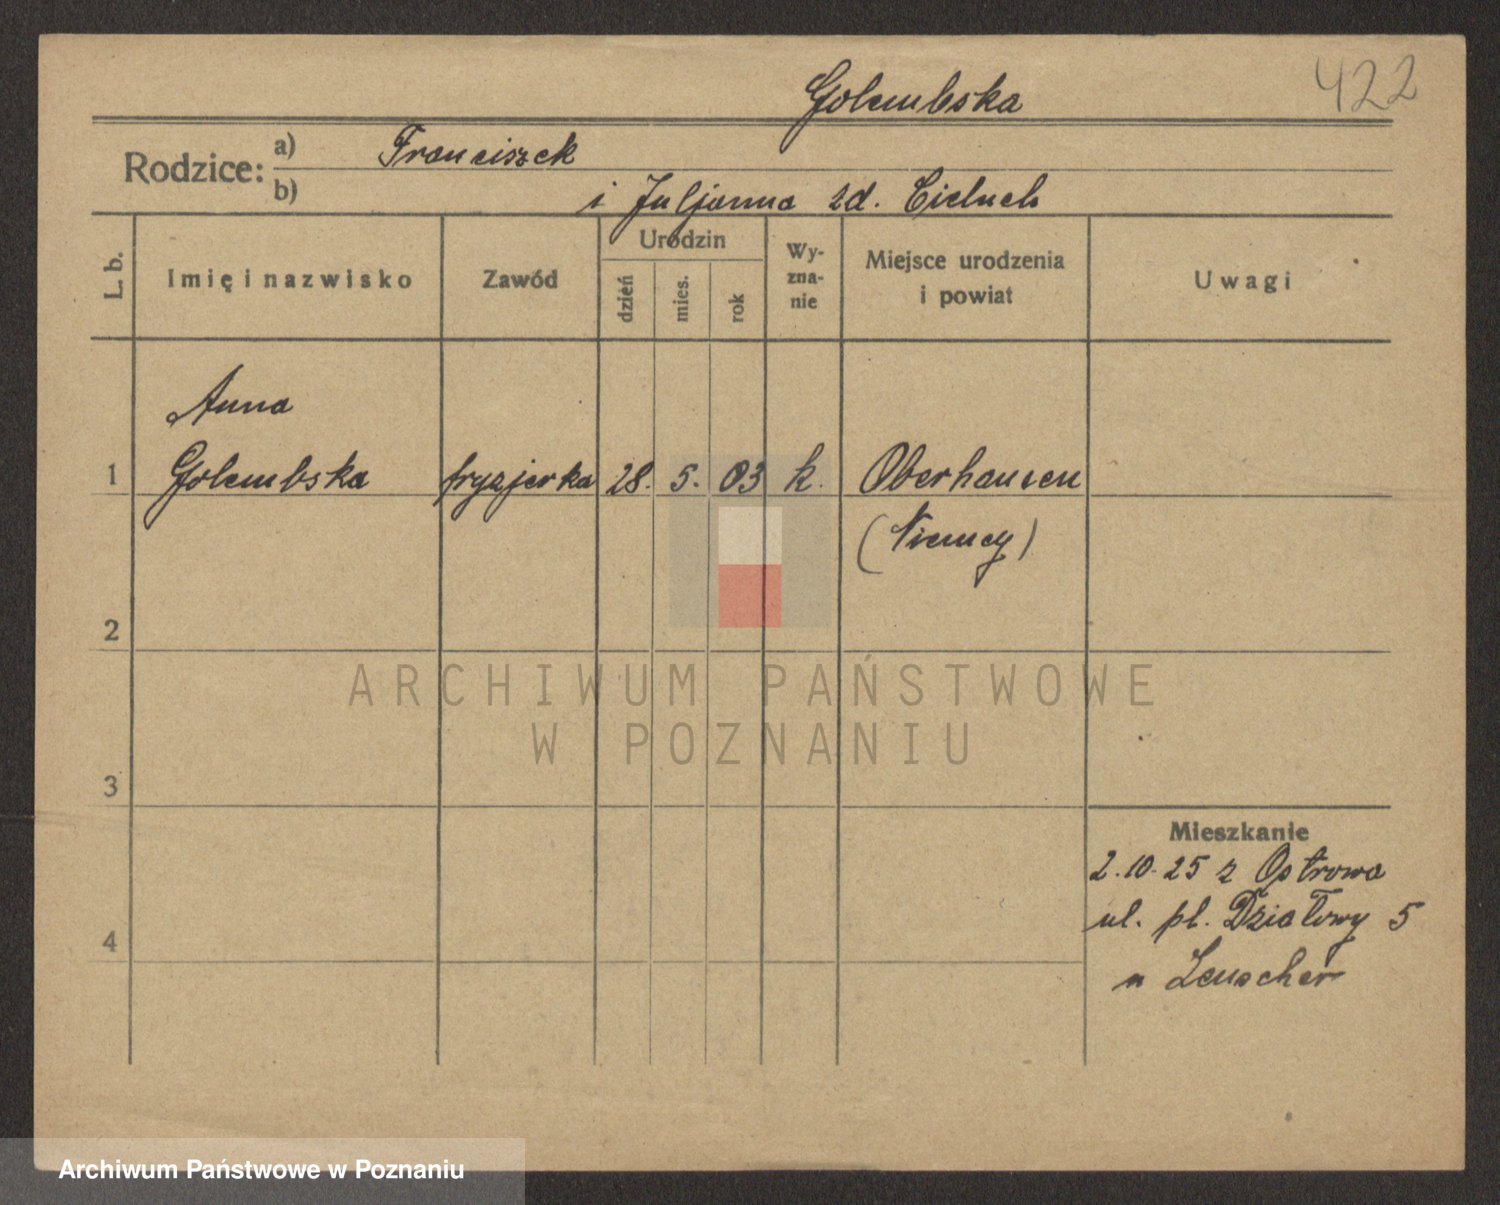 Golembska
422
Rodzice:
a) Franciszek
b) i Juljanna zd. Cieluch
L. b.
Imię i nazwisko
Zawód
Urodzin
dzień
mies.
rok
Wy-
zna-
nie
Miejsce urodzenia
i powiat
Uwagi
Anna
1 Golembska fryzjerka 28. 5. 03 k. Oberhausen
(Niemcy)
2
3
4
Mieszkanie
2.10.25 z Ostrowa
ul. pl. Działowy 5
u Leuscher
ARCHIWUM PAŃSTWOWE
W POZNANIU
Archiwum Państwowe w Poznaniu